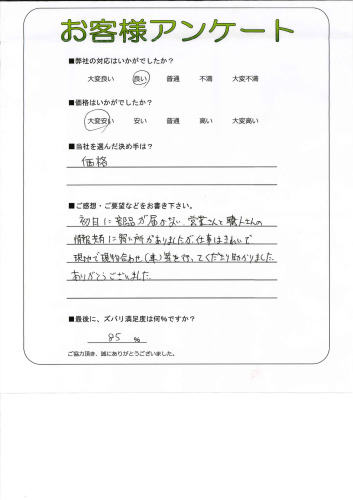 お客様アンケート
■弊社の対応はいかがでしたか？
大変良い 良い 普通 不満 大変不満
■価格はいかがでしたか？
大変安い 安い 普通 高い 大変高い
■当社を選んだ決め手は？
価格
■ご感想・ご要望などをお書き下さい。
初日に部品が届かない、営業さんと職人さんの
情報共有に弱い所がありましたが、仕事はきれいで
現地で現物合わせ(車)等を行ってくださり助かりました。
ありがとうございました。
■最後に、ズバリ満足度は何％ですか？
85 ％
ご協力頂き、誠にありがとうございました。